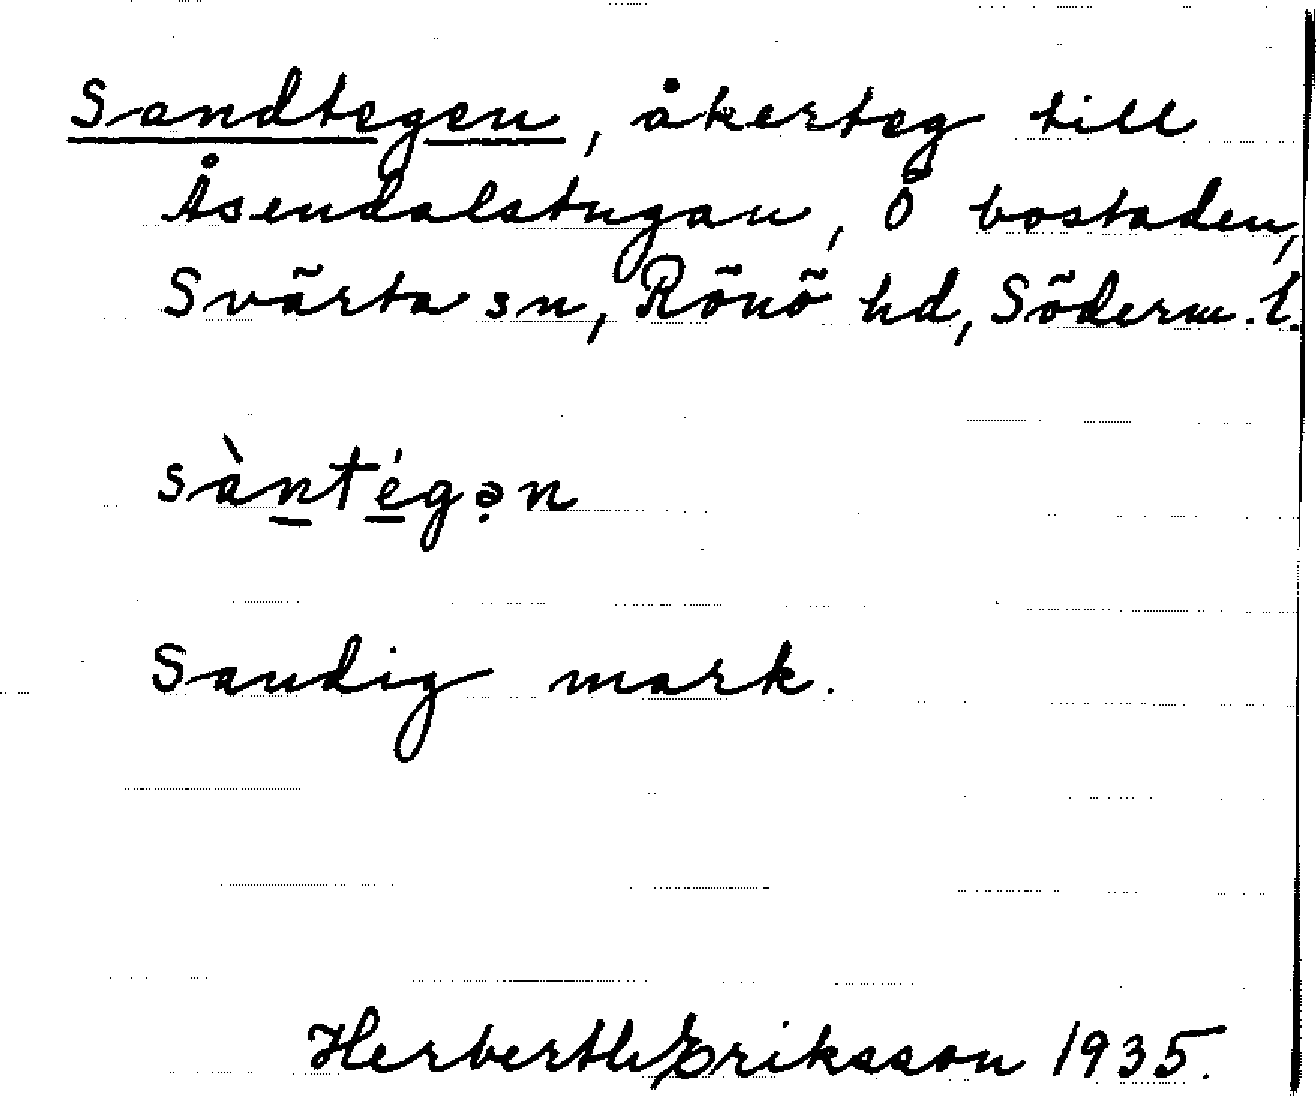 Sandtegen, åkerteg till
Åsendalstugan, Ö bostaden,
Svärta sn, Rönö hd, Söderm. l.
sàntégən
Sandig mark.
Herberth Eriksson 1935.